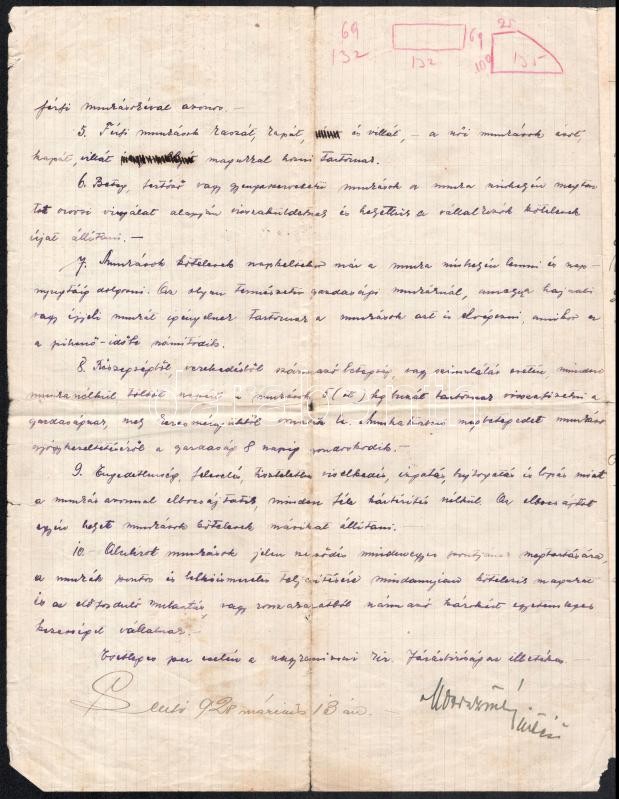 69
132
69
132
25
109
135
férfi munkáséval azonos. —
5. Férfi munkások kaszát, kapát, és villát, — a női munkások ásót,
kapát, villát magukkal hozni tartoznak.
6. Beteg, terhes vagy munkások a munka színhelyén megtar
tott orvosi vizsgálat alapján visszaküldetnek és helyettük a vállalkozók kötelesek
újat állítani. —
7. Munkások kötelesek napkeltekor már a munka színhelyén lenni és nap-
nyugtáig dolgozni. Az olyan természetű gazdasági munkánál, amely hajnali
vagy éjjeli munkát igényelnek tartoznak a munkások azt is elvégezni, amikor ez
a pihenő-időbe számítódik.
8. Részegségből, verekedésből származó betegség, vagy szimulálás esetén, minden
munkanélkül töltött napért a munkások 5 (öt) kg búzát tartoznak visszafizetni a
gazdaságnak, mely keresményükből vonható le. Munkaközben megbetegedett munkások
gyógykezeltetéséről a gazdaság 8 napig gondoskodik. —
9. Engedetlenség, feleselés, tiszteletlen viselkedés, izgatás, bujtogatás és lopás miatt
a munkás azonnal elbocsájtatik, minden féle kártérítés nélkül. Az elbocsájtott
egyén helyett munkások kötelesek másikat állítani. —
10. — Alulírott munkások jelen szerződés mindenegyes pontjának megtartására,
a munkák pontos és lelkiismeretes teljesítésére mindannyian kötelezik magukat
és az előforduló mulasztás, vagy rossz származó károkért egyetemleges
kezességet vállalnak. —
Esetleges per esetén a kir. Járásbíróság az illetékes —
928 március 13 án. —